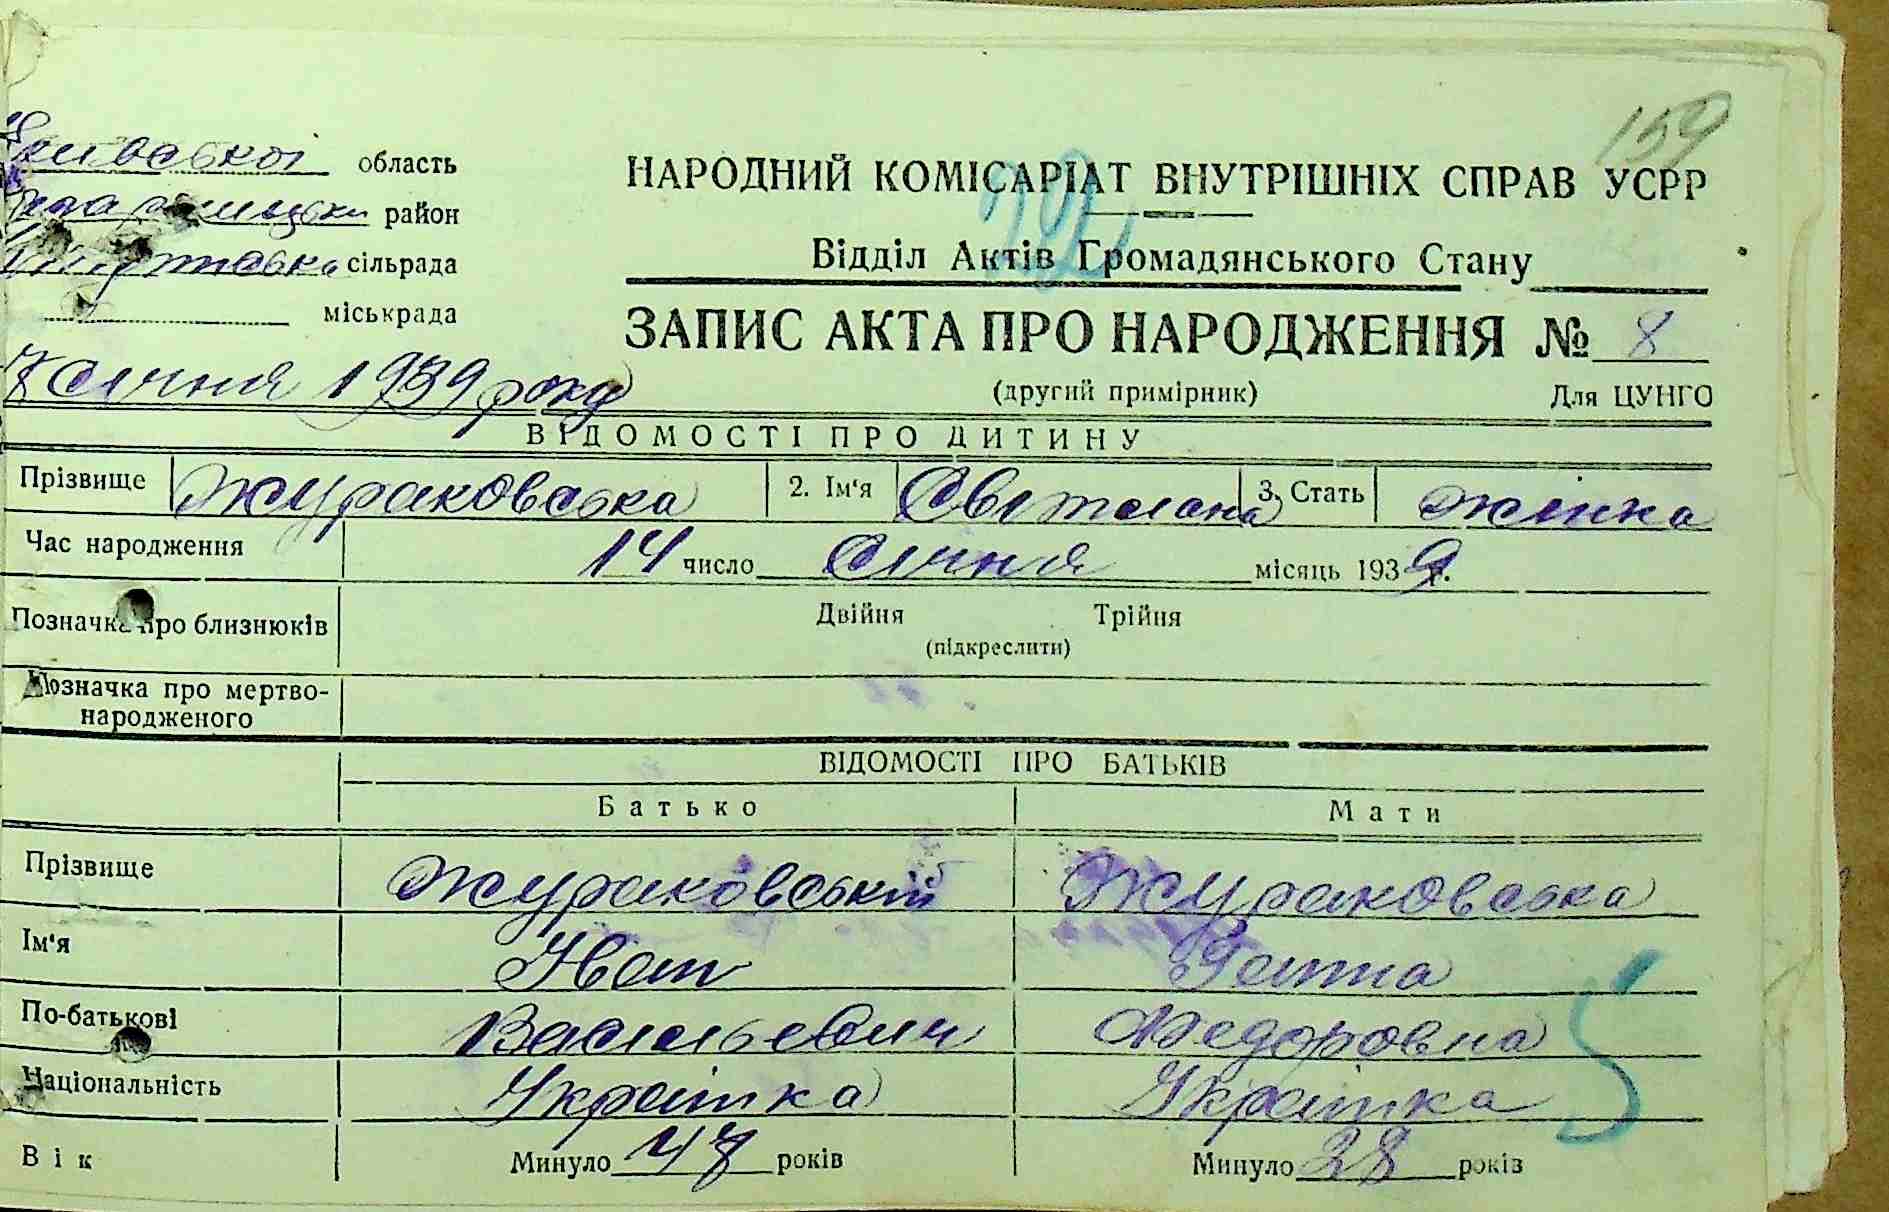 159
область
район
сільрада
міськрада
НАРОДНИЙ КОМІСАРІАТ ВНУТРІШНІХ СПРАВ УСРР
Відділ Актів Громадянського Стану
ЗАПИС АКТА ПРО НАРОДЖЕННЯ № 8
січня 1939 року
(другий примірник) Для ЦУНГО
ВІДОМОСТІ ПРО ДИТИНУ
Прізвище Жураковська 2. Ім'я Светлана 3. Стать жінка
Час народження 14 число січня місяць 1939 р.
Позначка про близнюків Двійня Трійня
(підкреслити)
Позначка про мертво-
народженого
ВІДОМОСТІ ПРО БАТЬКІВ
Батько Мати
Прізвище Жураковський Жураковська
Ім'я Іван Ганна
По-батькові Васильевич Федоровна
Національність Українка Українка
Вік Минуло 47 років Минуло 28 років